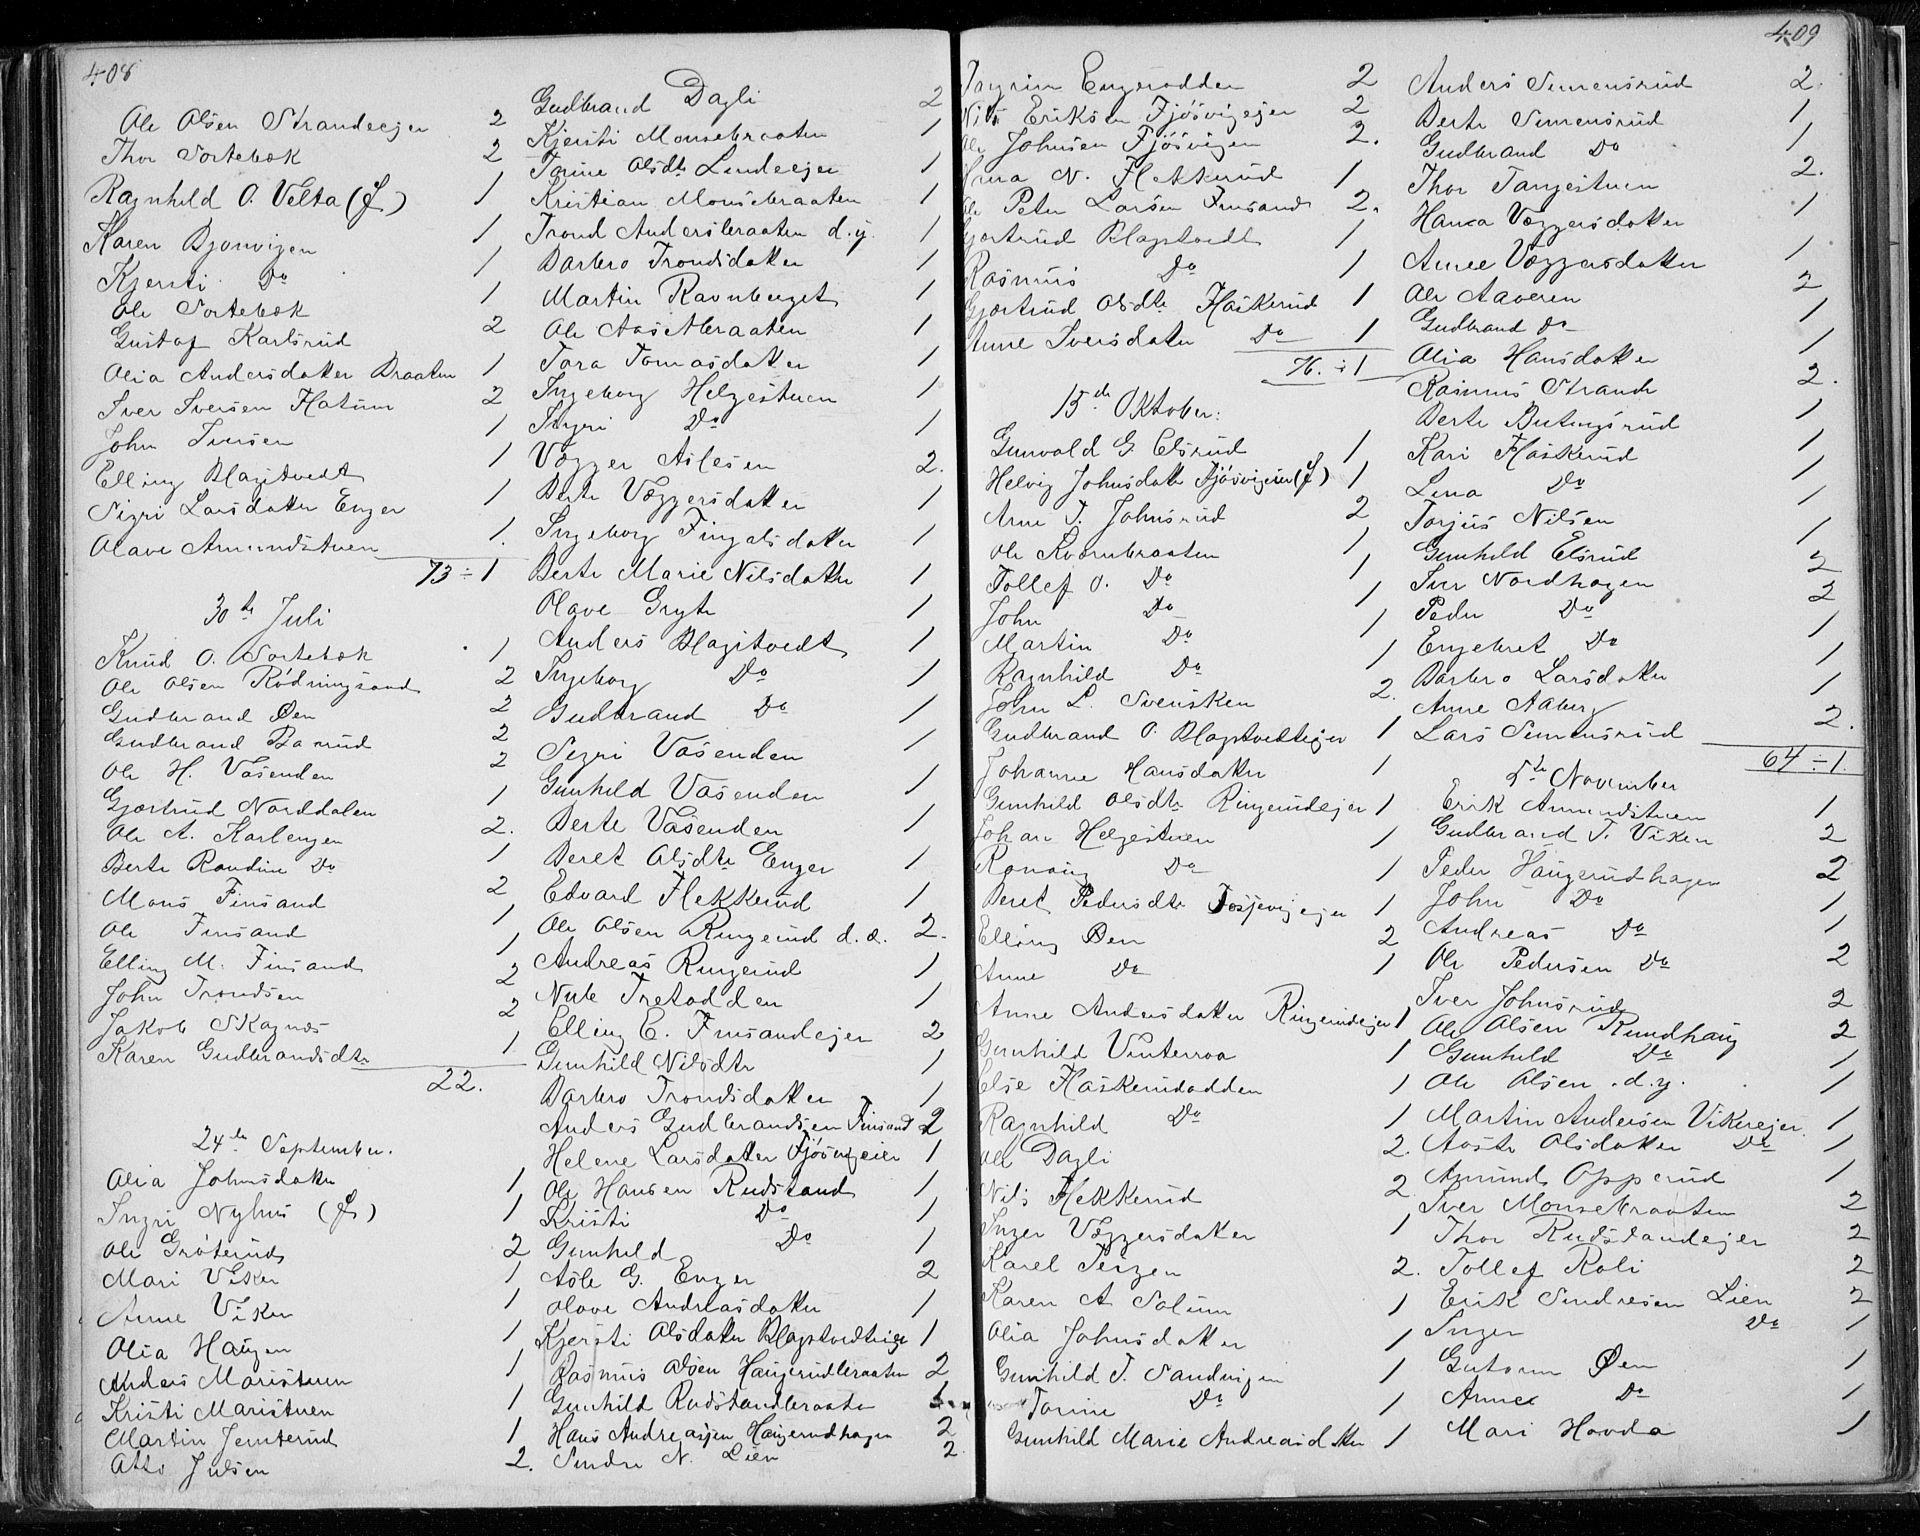 408
Ole Olsen Strandeejer 2
Thor Sortebæk 2
Ragnhild O. Velta (f) 1
Karen Bjonvigen 1
Kjersti Do 1
Ole Sortebæk 1
Gustaf Karlsrud 2
Olia Andersdatter Braaten 1
Iver Iversen Flatum 2
John Iversen 1
Elling Blagstvedt 1
Sigri Larsdatter Enger 1
Olave Amundstuen 1.
73 ÷ 1
30te Juli
Knud O. Sortebæk 1
Ole Olsen Rødningsand 2
Gudbrand Øen 2
Gudbrand Barrud 2
Ole H. Vasenden 2
Gjærtrud Norddalen 1
Ole A. Karlengen 2.
Berte Randine Do 1
Mons Finsand 2
Ole Finsand 1
Elling M. Finsand 1
John Trondsen 2
Jakob Skagnæs 2
Karen Gudbrandsdtr 1
22.
24de September.
Olia Johnsdatter 1
Ingri Nyhus (f) 1
Ole Grøterud 2
Mari Viker 1
Anne Viker 1
Olia Haugen 1
Anders Maristuen 1
Kristi Maristuen 1
Martin Jemterud 1
Otto Julsen 2.
Gudbrand Dagli 2
Kjersti Monsebraaten 1
Torine Olsdtr Lindeejer 1
Kristian Monsebraaten 1
Trond Andersbraaten d.y. 1
Barbro Trondsdatter 1
Martin Ravnberget 1
Ole Aasebraaten 1
Tora Tomasdatter 1
Ingeborg Helgestuen 1
Ingri Do 1
Vegger Aslesen 2.
Berte Veggersdatter 1
Ingeborg Fingalsdatter 1
Berte Marie Nilsdatter 1
Olave Gryte 1
Anders Blagstvedt 1
Ingeborg Do 1
Gudbrand Do 1
Sigri Vasenden 1
Gunhild Vasenden 1
Berte Vasenden 1
Beret Olsdtr Enger 1
Edvard Flekkerud 1
Ole Olsen Ringerud d.æ. 2.
Andreas Ringerud 1
Nub Tretodden 1
Elling E. Finsandejer 2
Gunhild Nilsdtr 1
Barbro Trondsdatter 1
Anders Gudbrandsen Finsand 2
Helene Larsdatter Fjøsvigeier 1
Ole Hansen Rudstand 1
Kristi Do 1
Gunhild Do 1
Asle G. Enger 2
Olave Andreasdatter 1
Kjersti Olsdatter Blagstvedteie 1
Rasmus Olsen Haugerudbraaten 2
Gunhild Rudstandbraaten 1
Hans Andreassen Haugerudhagen 2
Sindre N. Lien 2.
409
Torgrim Engerodden 2
Nils Eriksen Fjøsvigejer 2
Ole Johnsen Fjøsvigen 2.
N. Flekkerud 1
Ole Peter Larsen Finsand 2.
Gjertrud Blagstvedt 1
Rasmus Do 1
Gjertrud Olsdtr Haskerud 1
Anne Iversdatter Do 1
76. ÷ 1
15de Oktober:
Gunvald G. Elsrud 1
Helvig Johnsdatter Fjøsvigeie (f) 1
Arne T. Johnsrud 2
Ole Kvernbraaten 1
Tollef O. Do 1
John Do 1
Martin Do 1
Ragnhild Do 1
John L. Svensken 2.
Gudbrand O. Blagstvedtejer 1
Johanne Hansdatter 1
Gunhild Olsdtr Ringerudejer 1
Johan Helgestuen 1
Rønaug Do 1
Beret Pedersdtr Fosjevigejer 1
Elling Øen 2
Anne Do 1
Anne Andersdatter Ringerudejer 1
Gunhild Vinterroa 1
Else Haskerudodden 1
Ragnhild Do 1
Ole Dagli 2.
Nils Flekkerud 2
Inger Veggersdatter 1
Karel Teigen 2.
Karen A Solum 1
Olia Johnsdatter 1
Gunhild T. Sandvigen 1
Torine Do 1
Gunhild Marie Andreasdatter 1
Anders Simensrud 2.
Berte Simensrud 1
Gudbrand Do 1
Thor Tangestuen 2.
Hanna Veggersdatter 1
Anne Veggersdatter 1
Ole Aaveren 2
Gudbrand do 1
Olia Hansdatter 1
Rasmus Strande 2.
Berte Butingsrud 1
Kari Haskerud 1
Lina Do 1
Torjus Nilsen 1
Gunhild Elsrud 1
Iver Nordhagen 2
Peder Do 2
Engebret Do 1
Barbro Larsdatter 1
Anne Aaberg 1
Lars Simensrud 2.
64 ÷ 1.
5te November
Erik Amundstuen 1
Gudbrand T. Viken 2
Peder Haugerudhagen 2
John Do 1
Andreas Do 1
Ole Pedersen Do 2
Iver Johnsrud 2
Ole Olsen Rundhaug 2
Gunhild Do 1
Ole Olsen d.y. 1
Martin Andersen Vikerejer 1
Aaste Olsdatter Do 1
Amund Opperud 1
Iver Monsebraaten 2
Thor Rudstandejer 2
Tollef Roli 2
Erik Sindresen Lien 2
Inger Do 1
Gutorm Øen 1
Anne Do 1
Mari Hovda 1